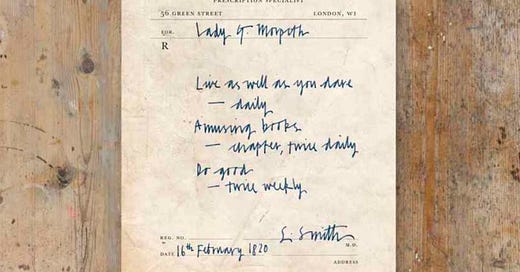 PRESCRIPTION SPECIALIST
56 GREEN STREET LONDON, W1
FOR Lady G. Morpeth
R
Live as well as you dare
— daily
Amusing books
— chapter, twice daily
Do good
— twice weekly
REG. NO. S. Smith M.D.
DATE 16th February 1820
ADDRESS